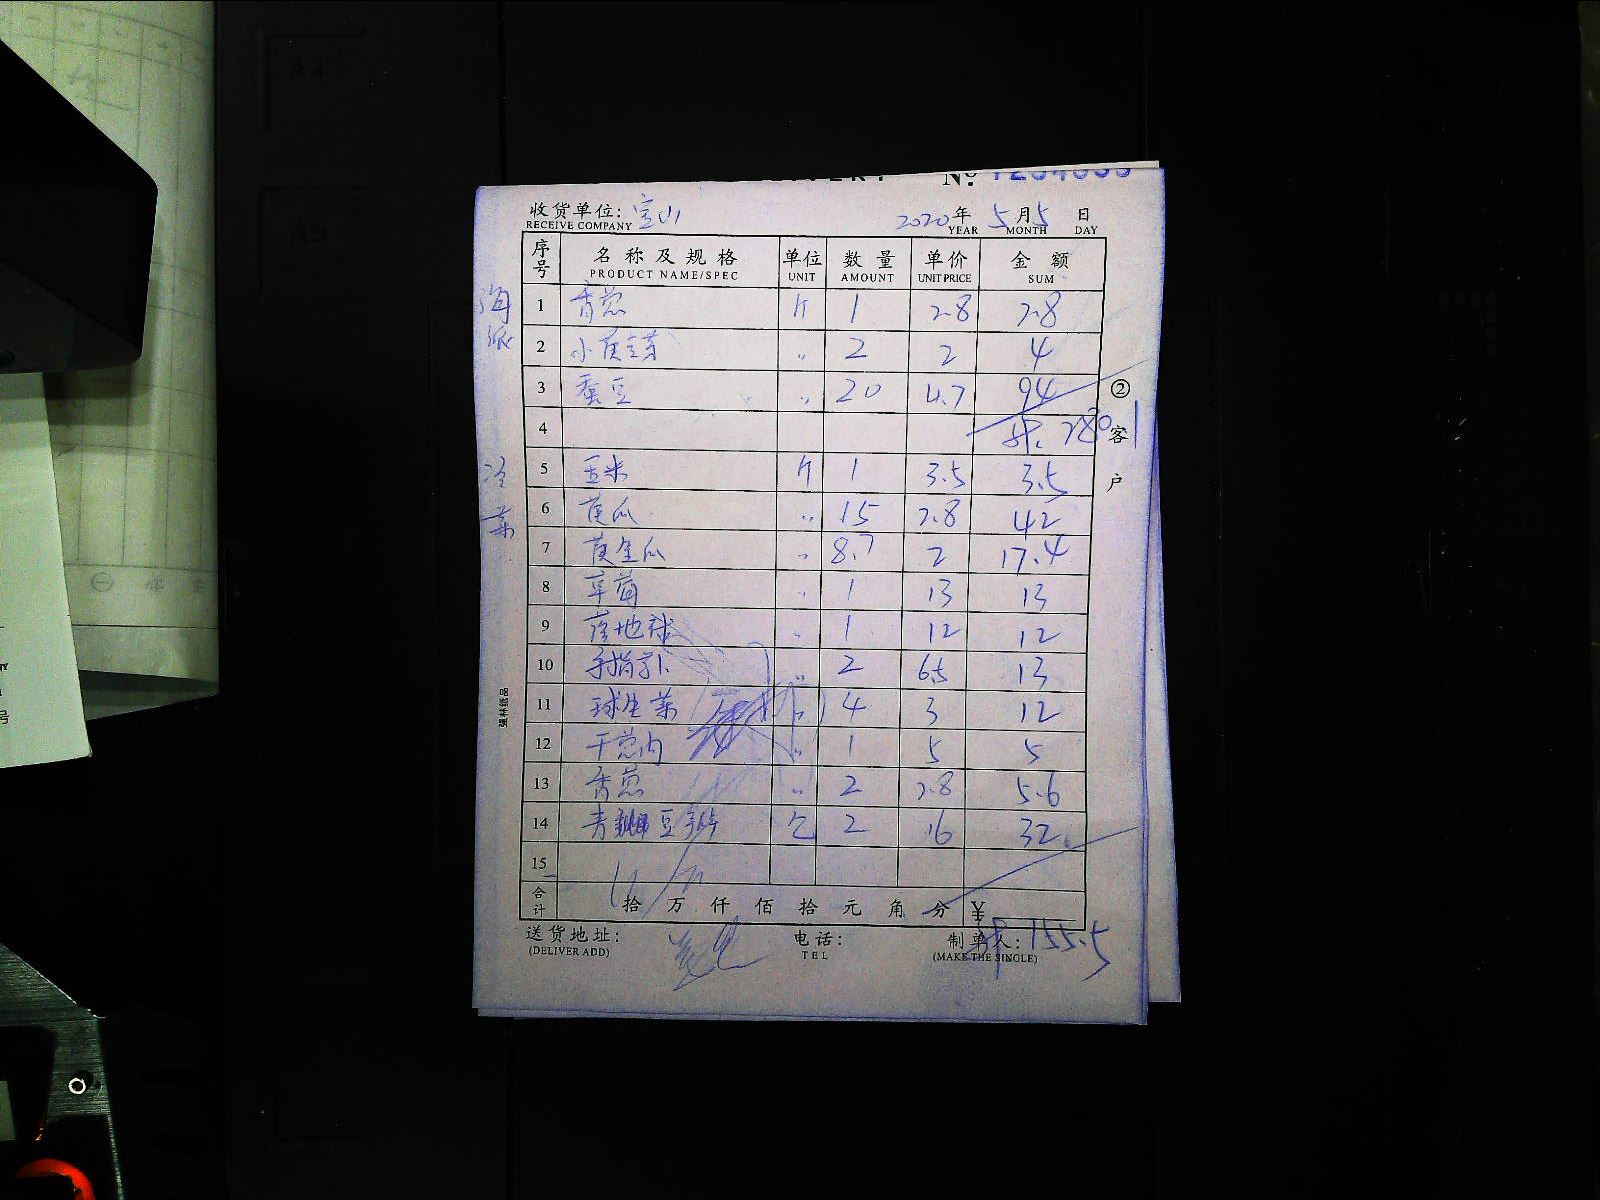 No: 1234533
收货单位: 宝山 2020年 5月5日
RECEIVE COMPANY YEAR MONTH DAY
序号 名称及规格 单位 数量 单价 金额
PRODUCT NAME/SPEC UNIT AMOUNT UNIT PRICE SUM
海派
1 香葱 斤 1 2.8 2.8
2 小黄豆芽 〃 2 2 4
3 蚕豆 〃 20 4.7 94
②客户
4
冷菜
5 玉米 斤 1 3.5 3.5
6 黄瓜 〃 15 2.8 42
7 黄金瓜 〃 8.7 2 17.4
8 草莓 〃 1 13 13
9 落地球 〃 1 12 12
10 手指 〃 2 6.5 13
11 球生菜 〃 4 3 12
12 干葱肉 〃 1 5 5
13 香葱 〃 2 2.8 5.6
14 青 豆 2 16 32
15
合计 拾 万 仟 佰 拾 元 角 分 ¥
送货地址: 电话: 制单人: 155.5
(DELIVER ADD) TEL (MAKE THE SINGLE)
强林纸品